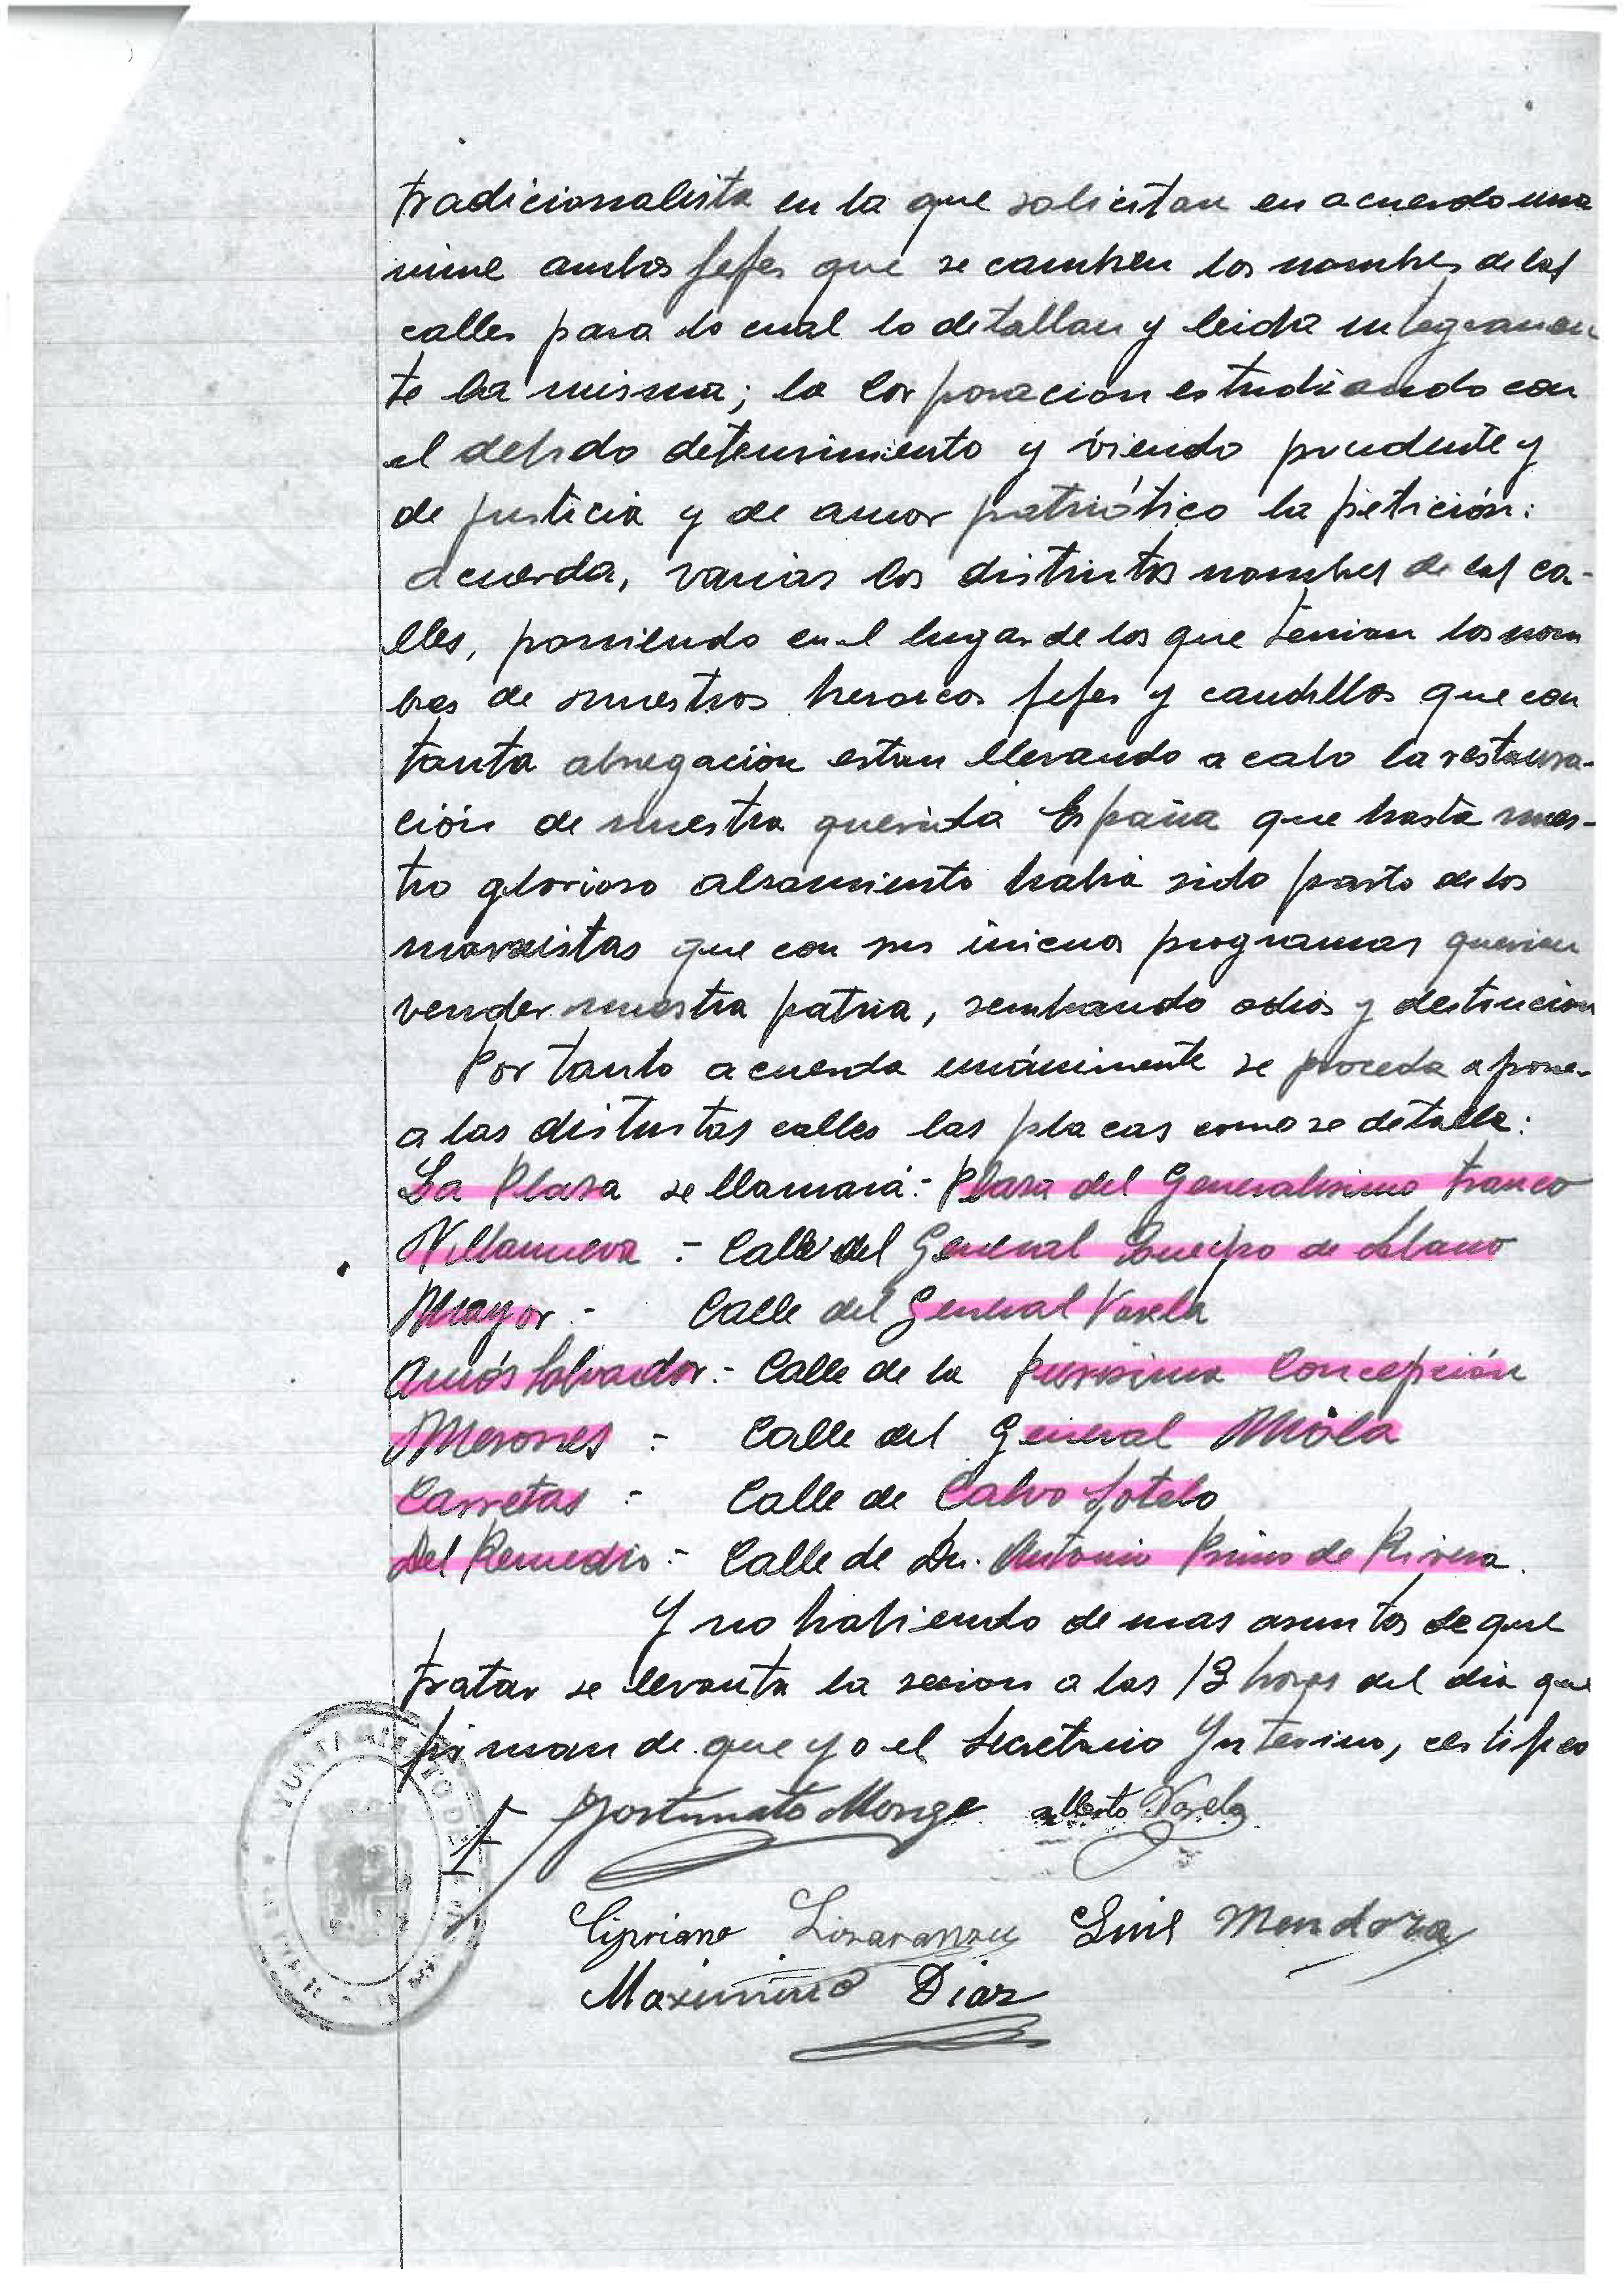 tradicionalista en la que solicitan en acuerdo una
nime ambos Jefes que se cambien los nombres de las
calles para lo cual lo detallan y leida integramen
te la misma; la Corporacion estudiando con
el debido detenimiento y viendo prudente y
de justicia y de amor patriótico la petición:
acuerda, varias los distintos nombres de las ca-
lles, poniendo en el lugar de los que tenian los nom
bres de nuestros heroicos jefes y caudillos que con
tanta abnegación estan llevando a cabo la restaura-
ción de nuestra querida España que hasta nues-
tro glorioso alzamiento habia sido pasto de los
marxistas que con sus inicuos programas querian
vender nuestra patria, sembrando odios y destrucion
Por tanto acuerda unánimente se proceda a poner
a las distintas calles las placas como se detalla:
La Plaza se llamará:- Plaza del Generalisimo Franco
Villanueva :- Calle del General Queipo de Llano
Mayor :- Calle del General Varela
Amós Salvador :- Calle de la Purisima Concepción
Mesones :- Calle del General Mola
Carretas :- Calle de Calvo Sotelo
Del Remedio :- Calle de Antonio Primo de Rivera.
Y no habiendo de mas asuntos de que
tratar se levanta la secion a las 13 horas del dia que
firman de que yo el Secretario Ynterino, certifico
Fortunato Monge Alberto Varela
Cipriano Luis Mendoza
Maximino Diaz